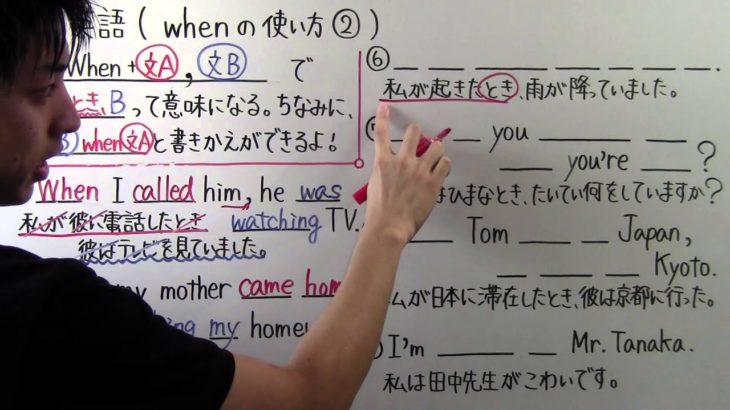 語(whenの使い方②)
When+文A, 文B で
とき,Bって意味になる。ちなみに、
when文Aと書きかえができるよ!
When I called him, he was
私が彼に電話したとき watching TV.
彼はテレビを見ていました。
my mother came hom
ing my home
⑥ __ __ __ __ __ __ __.
私が起きたとき、雨が降っていました。
__ __ you __ __
__ you're __?
はひまなとき、たいてい何をしていますか?
__ Tom __ __ Japan,
__ __ __ Kyoto.
私が日本に滞在したとき、彼は京都に行った。
I'm __ __ __ Mr. Tanaka.
私は田中先生がこわいです。